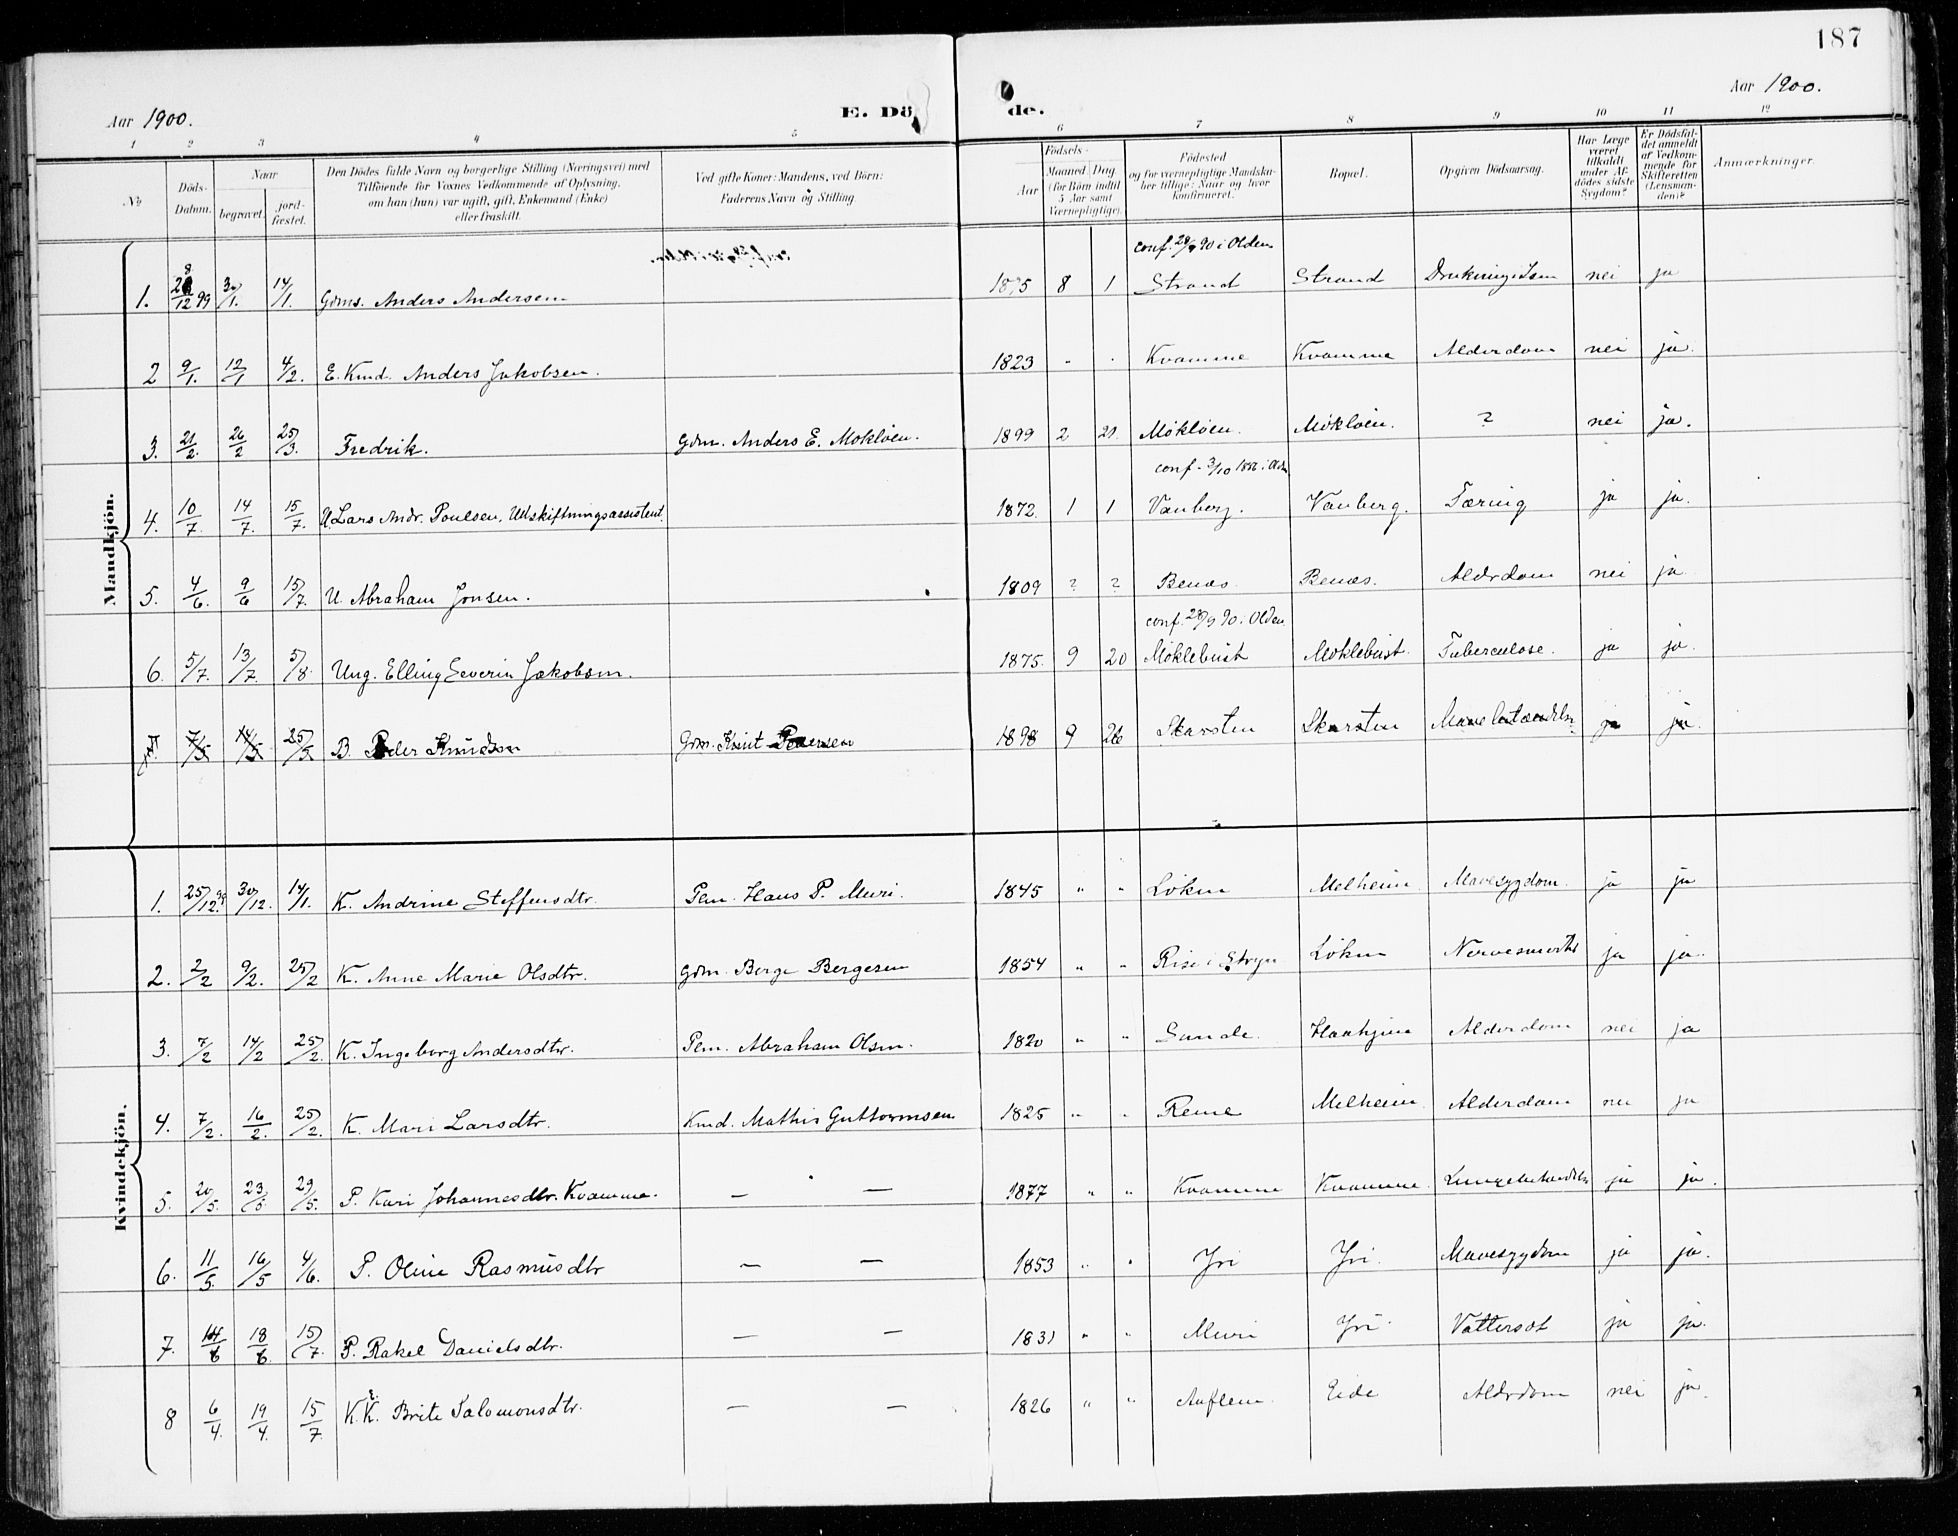 187
Aar 1900.
E. Dö de.
Aar 1900.
1 2 3 4 5 6 7 8 9 10 11 12
No
Döds-Datum.
Naar
begravet.
jordfæstet.
Den Dödes fulde Navn og borgerlige Stilling (Næringsvei) med
Tilföiende for Voxnes Vedkommende af Oplysning,
om han (hun) var ugift, gift, Enkemand (Enke)
eller fraskilt.
Ved gifte Koner: Mandens, ved Börn:
Faderens Navn og Stilling.
Födsels-
Aar
Maaned Dag
(for Börn indtil
5 Aar samt
Værnepligtige).
Födested
og for værnepligtige Mandskaber tillige: Naar og hvor
konfirmeret.
Bopæl.
Opgiven Dödsaarsag.
Har Læge
været
tilkaldt
under Afdödes sidste
Sygdom?
Er Dödsfaldet anmeldt
af Vedkommende for
Skifteretten
(Lensmanden)?
Anmærkninger.
Mandkjön.
conf. 28/9 90 i Olden
1. 28/12 99 3/1. 14/1. Gdms. Anders Andersen 1875 8 1 Strand Strand Drukning i Isen nei ja
2 9/1. 12/1 4/2. E. Kmd. Anders Jakobsen. 1823 " " Kvamme Kvamme Alderdom nei ja.
3. 21/2. 26/2 25/3. Fredrik. Gdm. Anders E. Mokløen. 1899 2 21. Mökløen. Mökløen. ? nei ja.
conf. 3/10 1886 i Olden
4. 10/7. 14/7. 15/7. U. Lars Andr. Poulsen, Udskiftningsassistent. 1872. 1 1 Vanberg. Vanberg. Tæring ja ja.
5. 4/6. 9/6 15/7. U. Abraham Jonsen. 1809 ? ? Benæs. Benæs. Aldrdom nei ja
conf. 28/9 90 i Olden.
6. 5/7. 13/7. 5/8. Ung. Elling Severin Jakobsen. 1875. 9 20 Möklebust Moklebust. Tuberculose. ja ja.
7. 7/5 14/5 25/5 B. Peder Knudsen Gdm. Knut Pedersen 1898 9 26 Skarsten Skarsten ja ja.
Kvindekjön.
1. 25/12. 99 30/12. 14/1. K. Andrine Steffensdtr. Pem. Hans P. Muri. 1845 " " Løken Melheim Mavesygdom. ja ja
2. 2/2 9/2. 25/2 K. Anne Marie Olsdtr. Gdm. Berge Bergesen 1854 " " Rise i Stryn Løken ja ja.
3. 7/2 14/2 25/2. K. Ingeborg Andersdtr. Pem. Abraham Olsen. 1820 " " Sunde. Haahjem Alderdom nei ja
4. 7/2. 16/2. 25/2. K. Mari Larsdtr. Kmd. Mathis Guttormsen 1825 " " Reme Melheim. Alderdom nei ja
5. 20/5. 23/5. 29/5. P. Kari Johannesdtr. Kvamme. — — 1877 " " Kvamme Kvamme. Lungebetændelse ja ja.
6. 11/5. 16/5 4/6. P. Oline Rasmusdtr — — 1853 " " Yri Yri. Mavesygdom ja ja.
7. 14/6 18/6. 15/7 P. Rakel Danielsdtr. — — 1831 " " Muri Yri Vattersot ja ja.
8 6/4. 19/4. 15/7. K. K. Brite Salomonsdtr. — — 1826 " " Auflem. Eide Aldrdom nei ja.